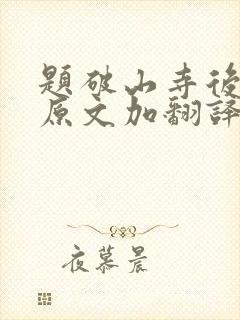 題破山寺後
原文加翻譯
夜慕晨